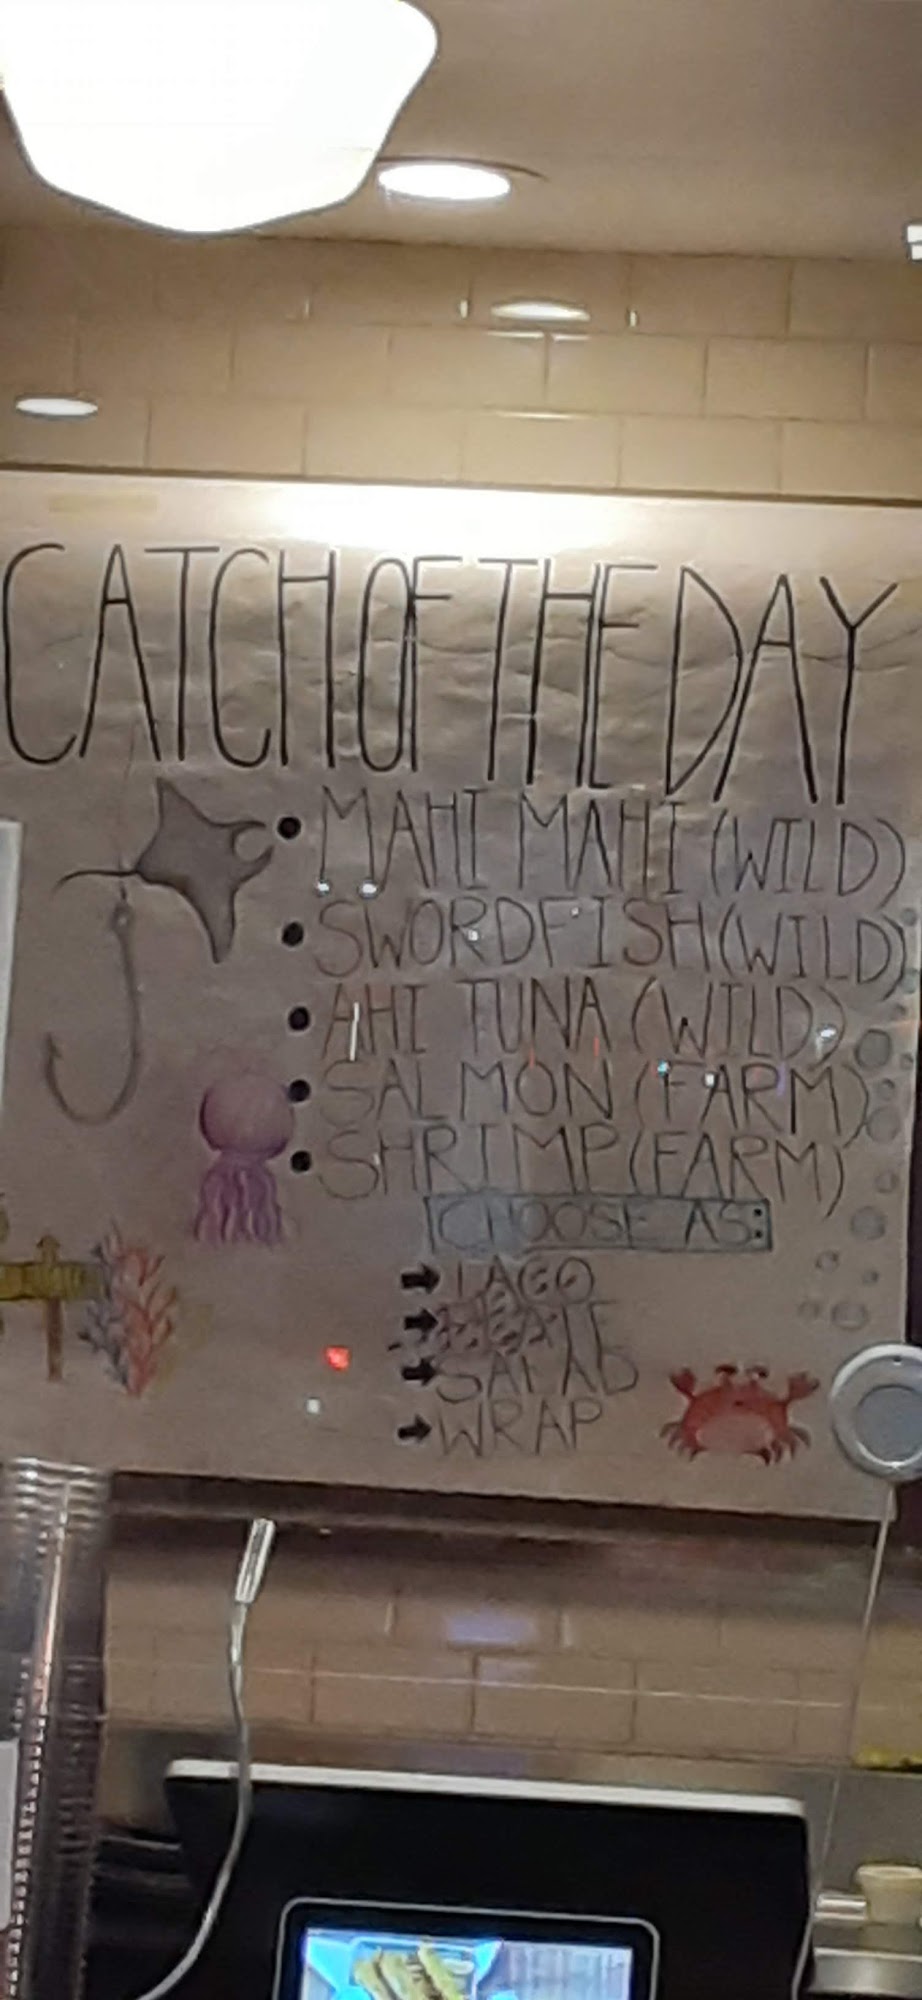 CATCH OF THE DAY
• MAHI MAHI (WILD)
• SWORDFISH (WILD)
• AHI TUNA (WILD)
• SALMON (FARM)
• SHRIMP (FARM)
CHOOSE AS:
➡ TACO
➡ SALAD
➡ WRAP